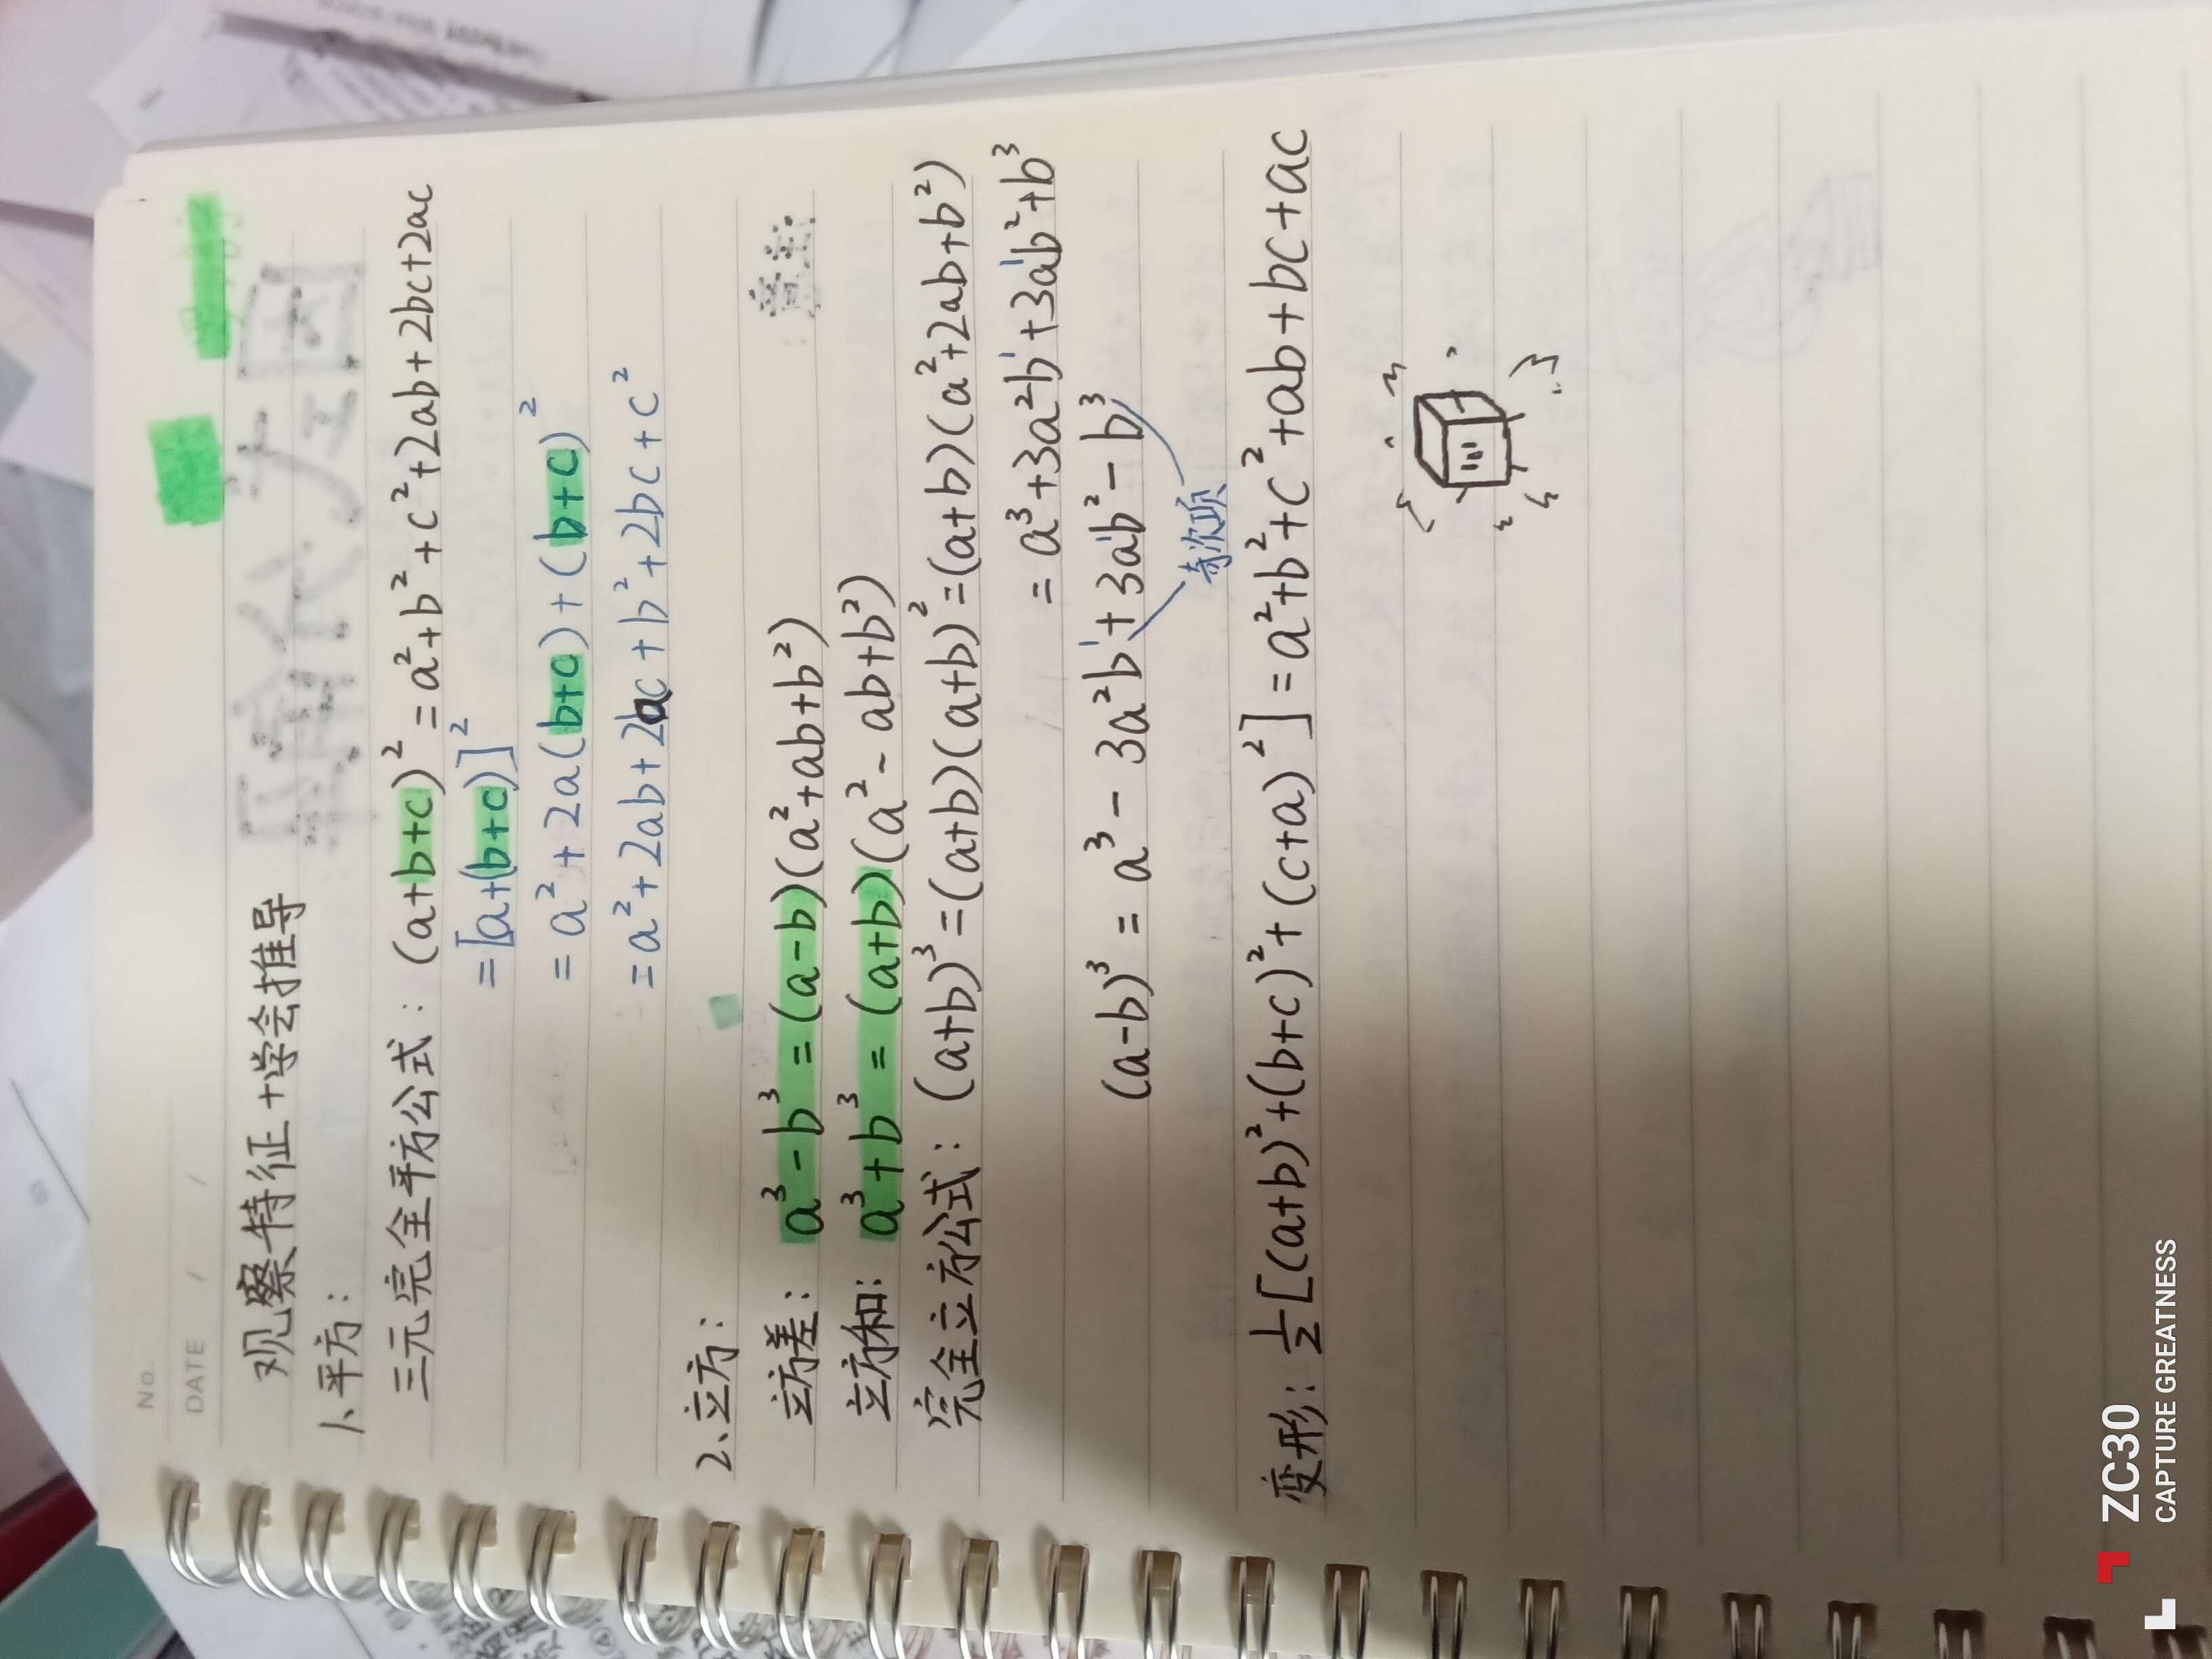 No.
DATE / /
观察特征+学会推导
1、平方:
三元完全平方公式: (a+b+c)² = a²+b²+c²+2ab+2bc+2ac
=[a+(b+c)]²
= a²+2a(b+c)+(b+c)²
=a²+2ab+2ac+b²+2bc+c²
2、立方:
立方差: a³-b³ = (a-b)(a²+ab+b²)
立方和: a³+b³ = (a+b)(a²-ab+b²)
完全立方公式: (a+b)³=(a+b)(a+b)²=(a+b)(a²+2ab+b²)
= a³+3a²b¹+3a¹b²+b³
(a-b)³ = a³-3a²b¹+3a¹b²-b³
奇次项
变形: ½[(a+b)²+(b+c)²+(c+a)²]=a²+b²+c²+ab+bc+ac
ZC30
CAPTURE GREATNESS